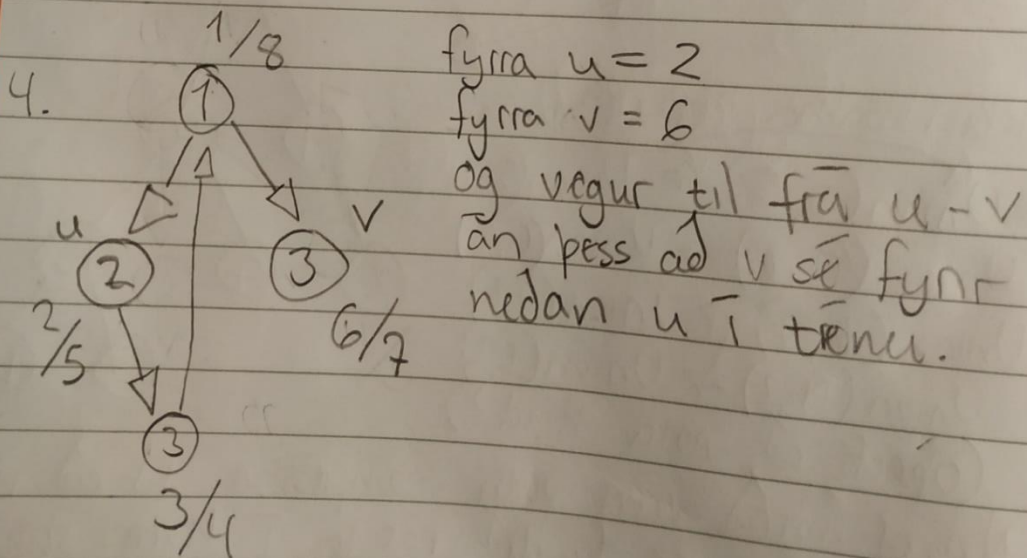 1/8
4.
1
u
v
2
3
2/5
6/7
3
3/4
fyrra u = 2
fyrra v = 6
og vegur til frā u - v
ān þess ad v sē fyrir
nedan u ī trēnu.